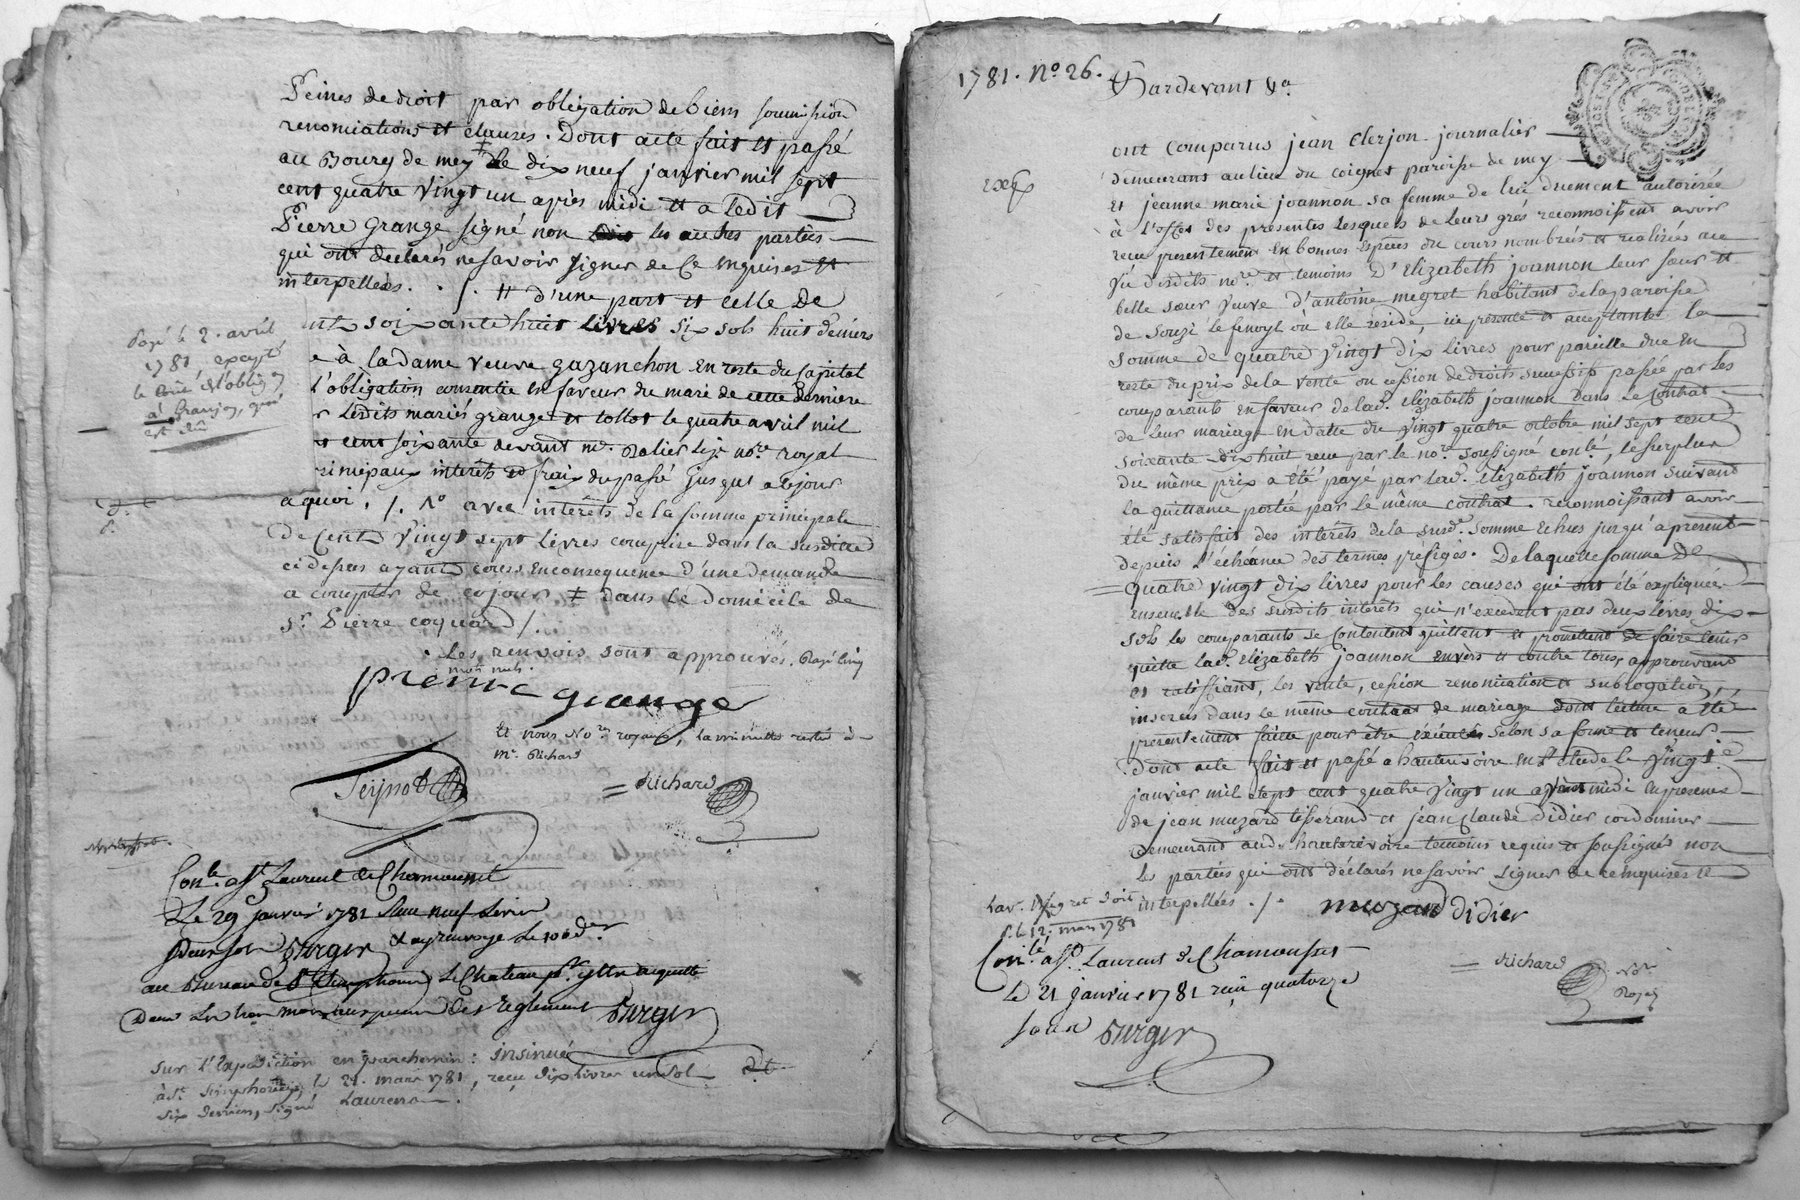 Peines de droit par obligation de biens soumission
renonciations et clauses. Dont acte fait et passé
au Bourg de mey le dix neuf janvier mil sept
cent quatre vingt un après midi et a ledit
Pierre Grange signé non les autres parties
qui ont declarés ne savoir signer de ce enquises et
interpellées. ./. # d'une part et celle de
soixante huit livres six sols huit deniers
à la dame veuve gazanchon en reste du capital
l'obligation consentie en faveur du mari de cette derniere
ledits mariés grange et tollot le quatre avril mil
cent soixante devant me. nore. royal
principaux intérêts et frais du passé jusqu'a ce jour
a quoi ./. No avec intérêts de la somme principale
de Cent Vingt sept livres comprise dans la susditte
ci dessus ayant cours en consequence d'une demande
a compter de ce jour ‡ dans le domicile de
sr. Pierre coquard /.
Les renvois sont approuvés. Rayé cinq
mots nuls.
pierre grange
Et nous Nores royaux, la minutte restée à
me. Richard
= Richard
Payé le 2. avril
1781 excepté
le Coné. et l'oblig.on
à Granjon, qui
est dû
Conle. asst. Laurent de Chamousset
Le 29 janvier 1781 Reçu neuf Livres
Deux sols Burger & ay renvoyé le 100 der
au Bureau de St. Simphorien Le Chateau
des Reglement Burger
sur l'Expedition en parchemin : insinué
à St. Simphorien, le 21. mars 1781, reçu dix livres un sol
six deniers, signé Laurens.
1781. No 26.
Pardevant &a.
ont comparus jean Clerjon journalier
demeurans au lieu du coignet paroisse de mey
Exp.
et jeanne marie joannon sa femme de lui duement autorisée
à l'effet des présentes lesquels de leurs grés reconnoissent avoir
recu presentement en bonnes especes du cours nombrées et realisées au
vu desdits nore. et temoins d'Elizabeth joannon leur sœur et
belle sœur veuve d'antoine megret habitant de la paroisse
de Souzi le fenoyl où elle reside, ici presente et acceptante la
somme de quatre vingt dix livres pour pareille due en
reste du prix de la vente ou cession de droits successifs passée par les
comparants en faveur de lad. elizabeth joannon dans le Contrat
de leur mariage en datte du vingt quatre octobre mil sept cent
soixante dix huit recu par le nore. soussigné conlé, le surplus
du même prix a été payé par lad. elizabeth joannon suivant
la quittance portée par le même contrat. reconnoissant avoir
été satisfait des intérêts de la susde. somme echus jusqu'a present
depuis l'échéance des termes préfigés. De laquelle somme de
quatre vingt dix livres pour les causes qui ont été expliquées
ensemble des susdits intérêts qui n'excedent pas deux livres dix
sols les comparants se contentent quittent et promettent de faire tenir
quitte lad. elizabeth joannon envers et contre tous, approuvant
et ratiffiant, les vente, cession renonciation et subrogation,
inserés dans le même contrat de mariage dont lecture a été
presentement faitte pour être éxécutés selon sa forme et teneur
Dont acte fait et passé a hauterivoire en l'etude le Vingt
janvier mil sept cent quatre vingt un avant midi en presence
de jean muzard tisserand et jean claude didier cordonnier
demeurans aud. hauterivoire temoins requis et soussignés non
les parties qui ont déclarés ne savoir signer de ce enquises et
interpellées. /. muzard didier
La ve. Megret doit
p. le 12. mars 1781
Conlé. asst. Laurens de Chamousset
Le 21 janvier 1781 reçu quatorze
sous Burger
= Richard
Nore
Royal